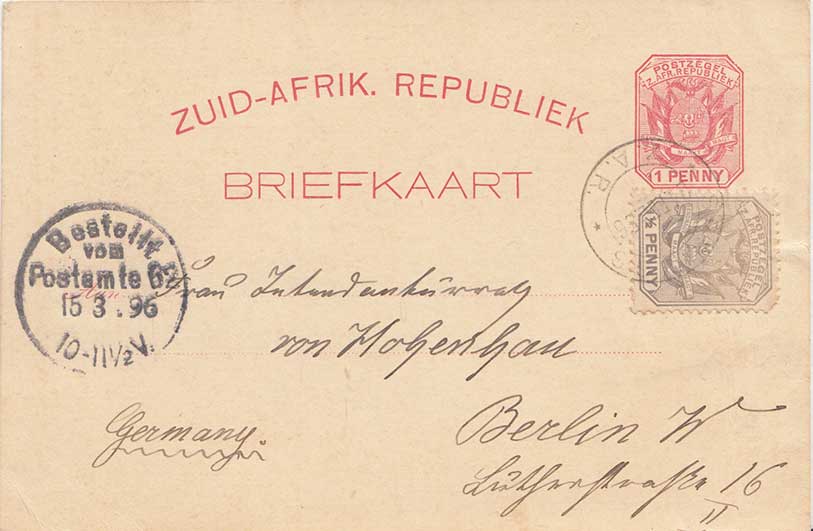 POSTZEGEL
Z. AFR. REPUBLIEK
1 PENNY
ZUID-AFRIK. REPUBLIEK
BRIEFKAART
Z. A. R. *
POSTZEGEL
Z. AFR. REPUBLIEK
½ PENNY
Bestellt
vom
Postamte 62
15 3.96
10-11½ V.
Frau Intendanturrat
von Hohenhau
Berlin W
Lutherstraße 16
II
Germany